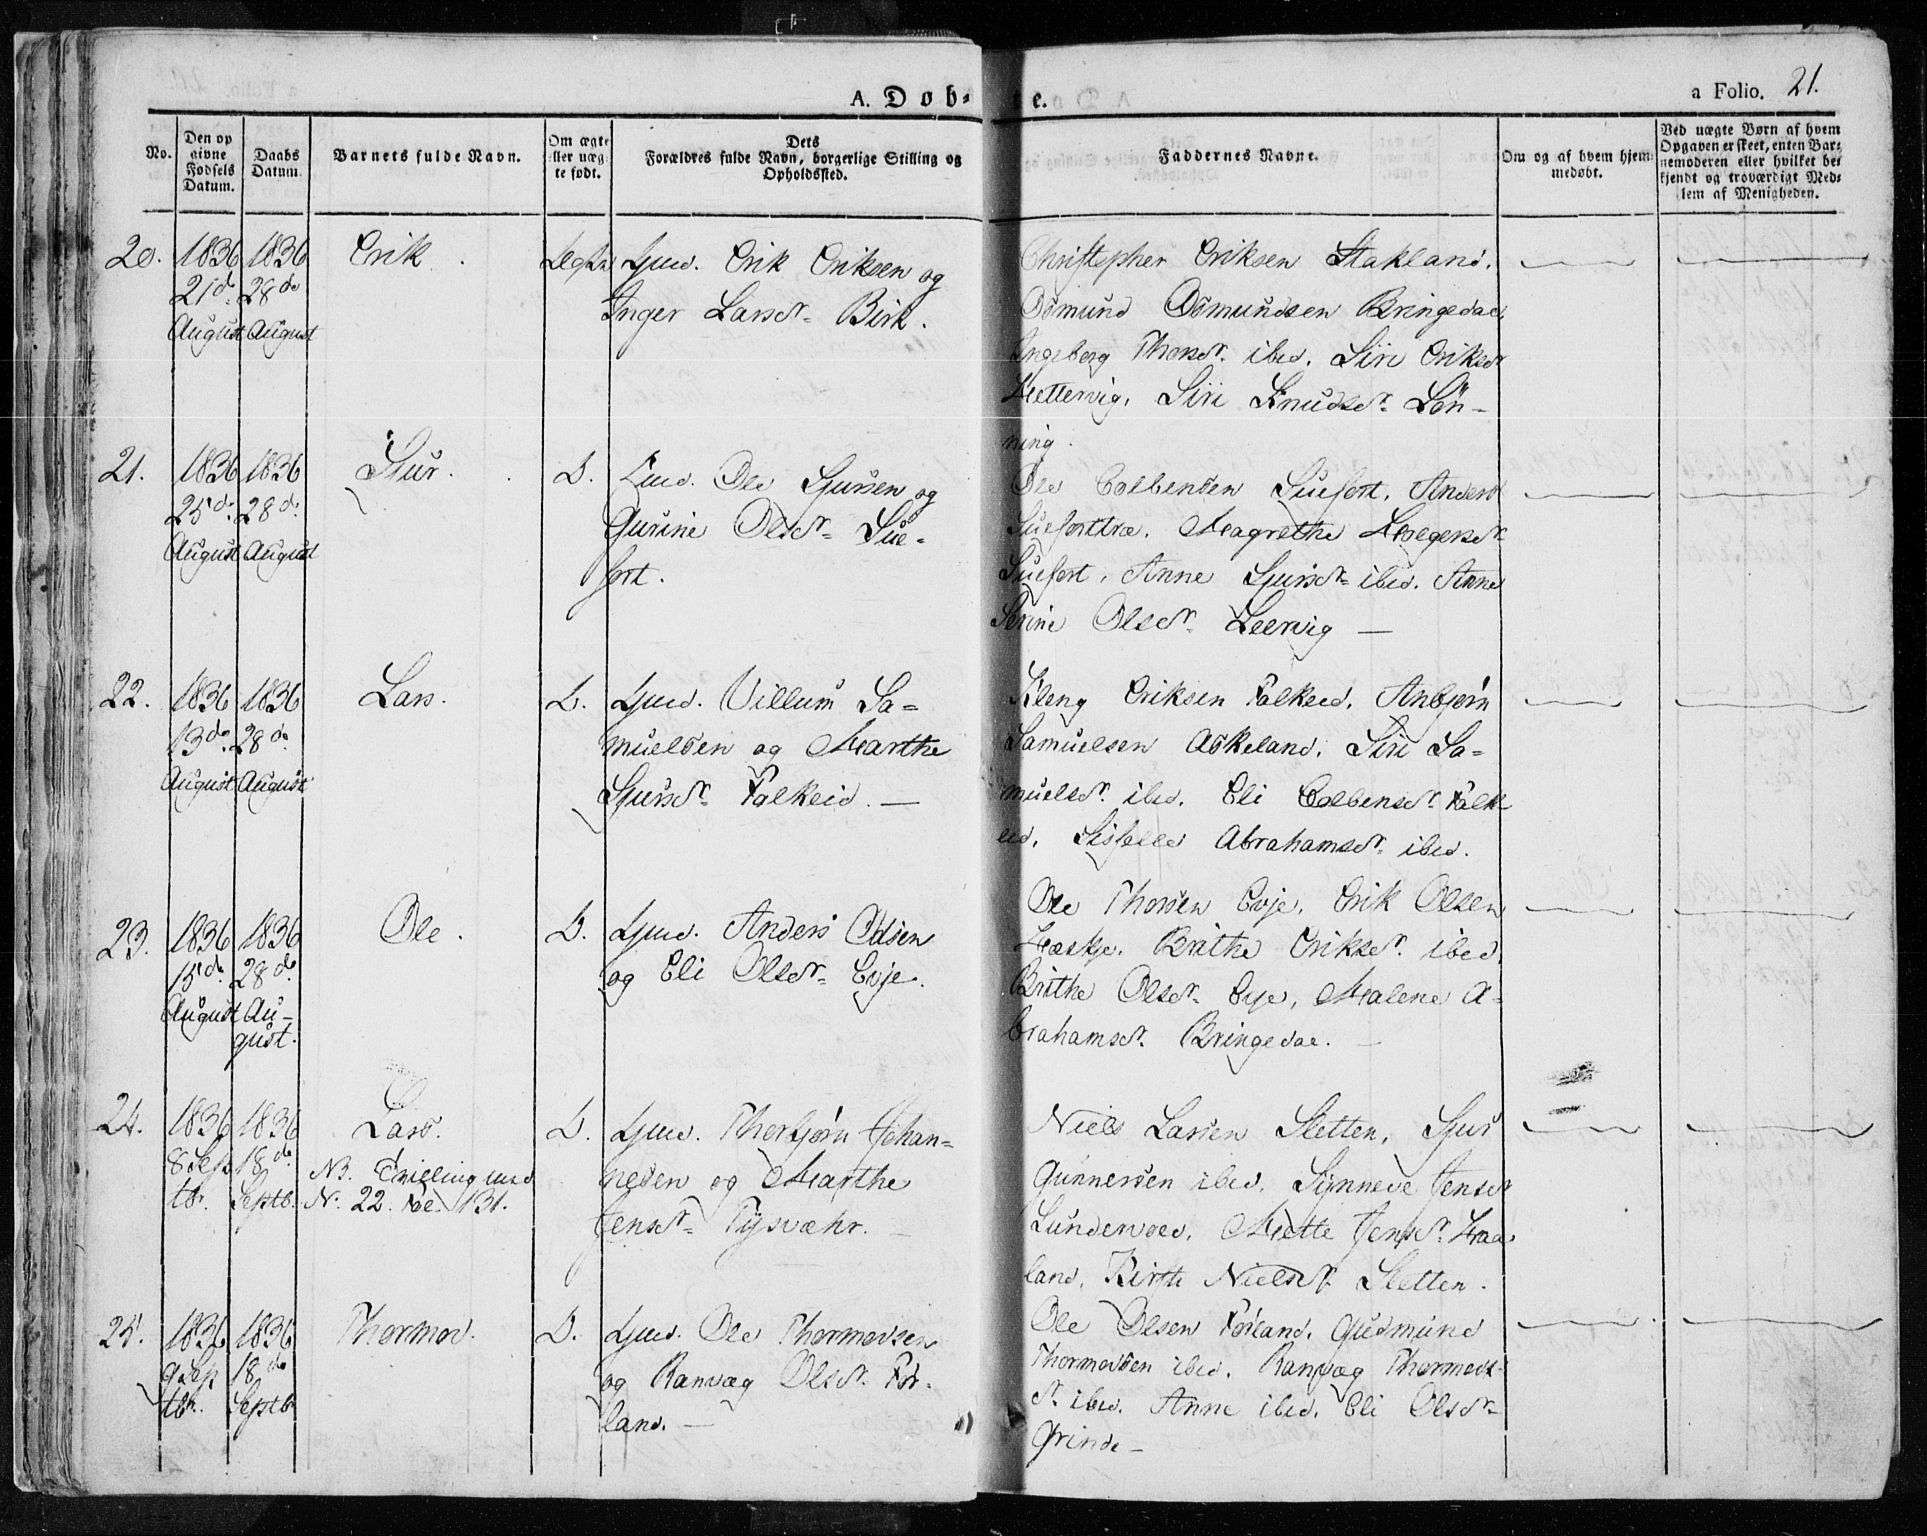 A. Døb-
te.
a Folio. 21.
No.
Den op
givne
Fødsels
Datum.
Daabs
Datum.
Barnets fulde Navn.
Om ægte
eller uæg
te født.
Dets
Forældres fulde Navn, borgerlige Stilling og
Opholdssted.
Faddernes Navne.
Om og af hvem hjem
medøbt.
Ved uægte Børn af hvem
Opgaven er skeet, enten Bar-
nemoderen eller hvilket be-
kjendt og troværdigt Med-
lem af Menigheden.
20. 1836 1836 Erik.
21 d. 28 d.
August August
Gmd. Erik Eriksen og
Inger Larsdr. Birk.
Christopher Eriksen Stakland.
Osmund Osmundsen Bringedal
Ingeborg Thorsdr. ibid. Siri Eriksdr
Hettervig. Siri Knudsdr. Løn-
ning.
21. 1836 1836 Siur. L.
25 d. 28 d.
August August
Gmd. Ole Sjursen og
Gurine Olsdr. Sue-
fort.
Ole Colbensen Suefort. Anders
Sueforttræ. Magrethe Holgersdr.
Suefort. Anne Sjursdr. ibid. Anne
Serine Olsdr. Leervig —
22. 1836 1836 Lars. L.
13 d. 28 d.
August August
Gmd. Villum Sa-
muelsen og Marthe
Sjursdr. Falkeid. —
Kleng Eriksen Falkeid. Anbjørn
Samuelsen Askeland. Siri Sa-
muelsdr. ibid. Eli Colbensdr. Falk-
eid. Sisselle Abrahamsdr. ibid.
23. 1836 1836 Ole. L.
15 d. 28 d.
August Au-
gust.
Gmd. Anders Odsen
og Eli Olsdr. Evje.
Ole Thorsen Evje. Erik Olsen
Haskje. Brithe Eriksdr. ibid.
Brithe Olsdr. Evje. Malene A-
brahamsdr. Bringedal. —
24. 1836 1836 Lars. L.
8 Sep 18 d.
tbr. Septb.
NB. Tvilling med
N. 22. Fol. 131.
Gmd. Thorbjørn Johan-
nesen og Marthe
Jensdr. Tysvæhr. —
Niels Larsen Sletten. Sjur
Gunnersen ibid. Synneve Jensdr
Lundervold. Mette Jensdr. Haa-
land. Kirsti Nielsdr. Sletten.
25. 1836 1836 Thormod. L.
9 Sep 18 d.
tbr. Septb.
Gmd. Ole Thormodsen
og Ranvæg Olsdr. Før-
land. —
Ole Olsen Førland. Gudmund
Thormodsen ibid. Ranvæg Thormods-
dr. ibid. Anne ibid. Eli Olsdr.
Grinde —